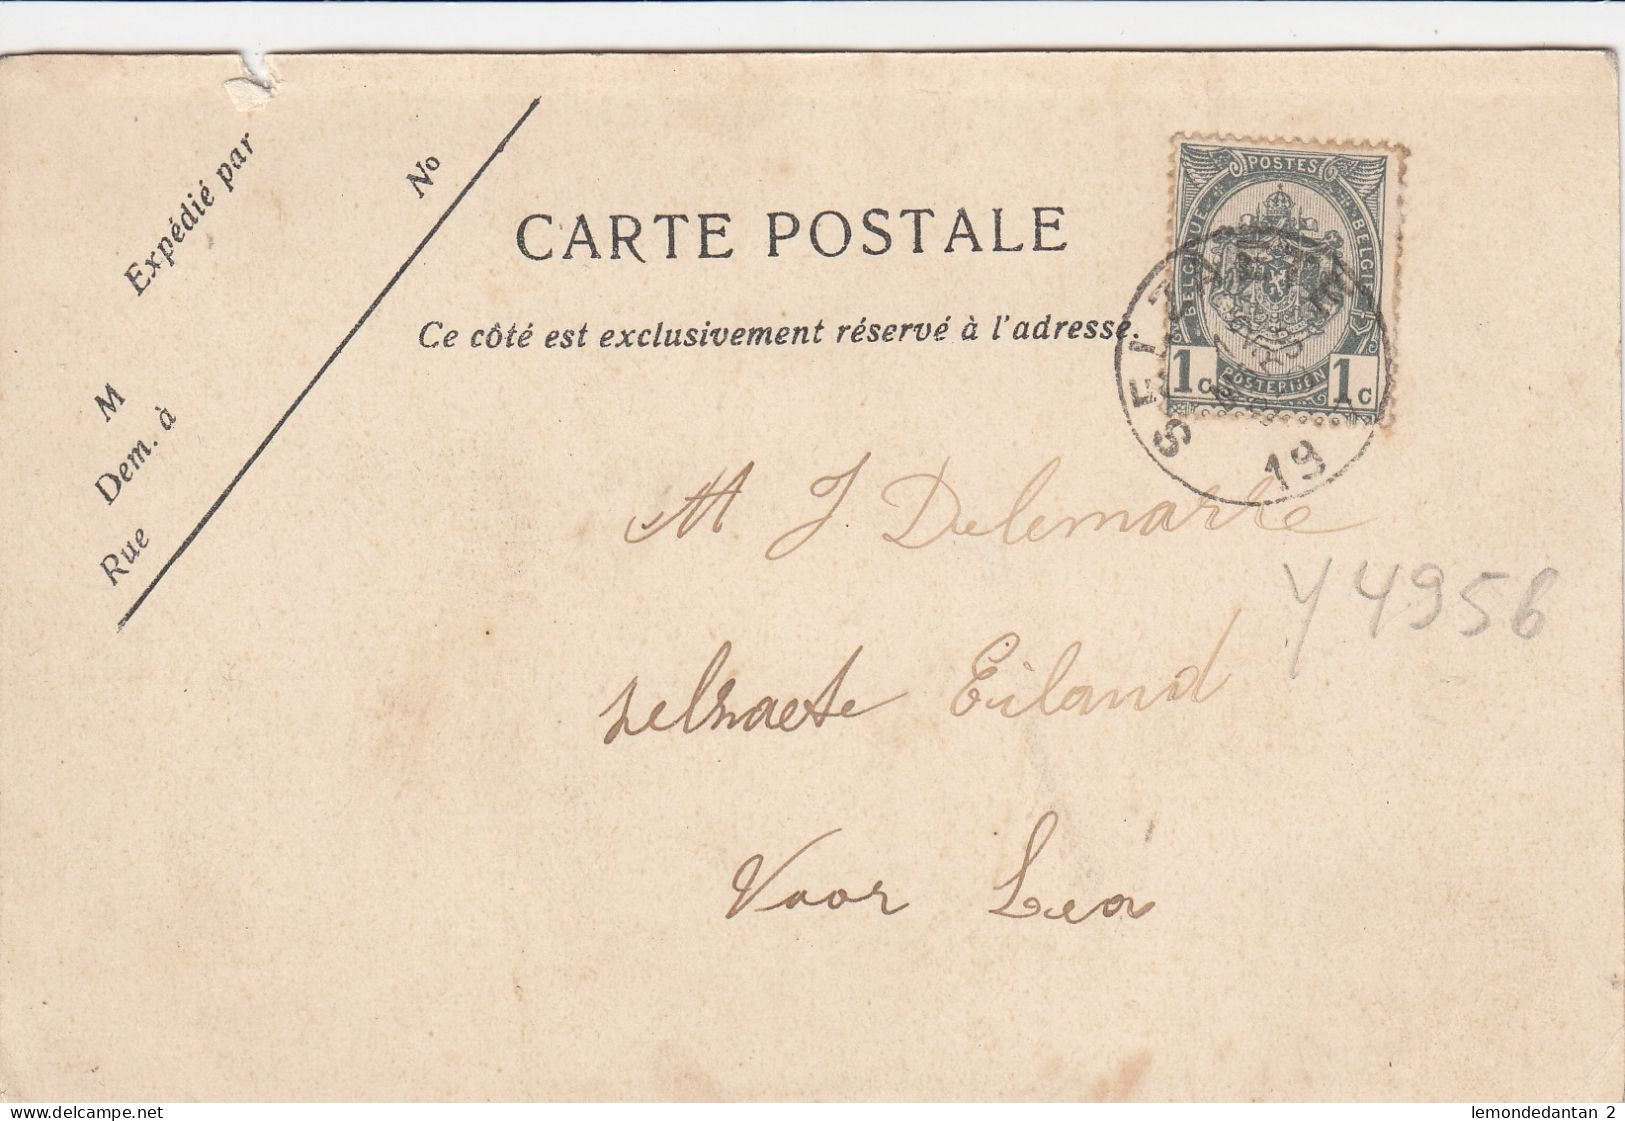 Expédié par
No
M
Dem. à
Rue
CARTE POSTALE
Ce côté est exclusivement réservé à l'adresse.
POSTES
BELGIQUE
BELGIË
1c
1c
POSTERIJEN
SELZAETE
19
M J Delemarre
Selzaete Eiland
Voor Lea
Y4956
delcampe.net
lemondedantan 2